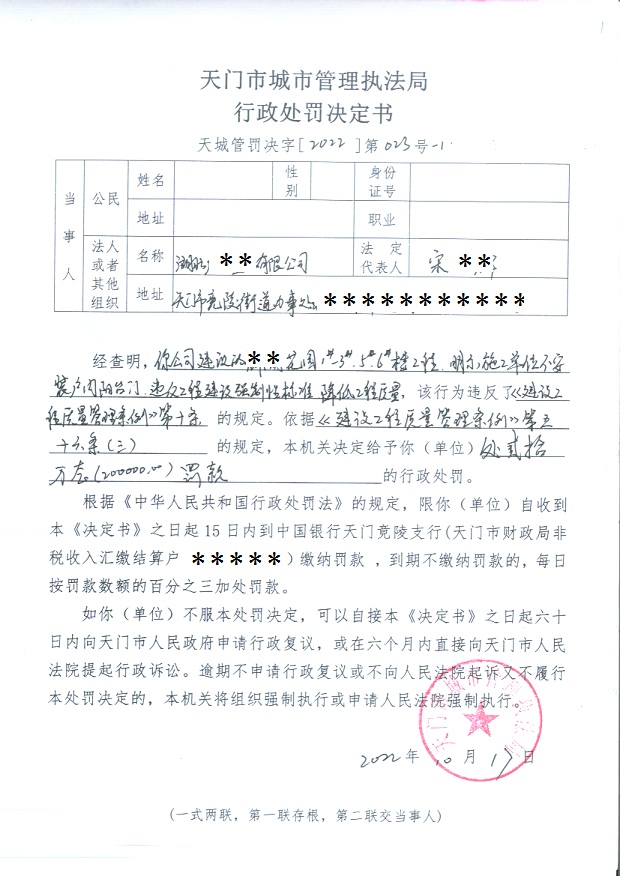 天门市城市管理执法局
行政处罚决定书
天城管罚决字[2022]第023号-1
当事人
公民
姓名
性别
身份证号
地址
职业
法人或者其他组织
名称 湖北**有限公司
法定代表人 宋**
地址 天门市竟陵街道办事处***********
经查明，你公司建设的**花园1#.3#.5#.6#楼工程，明示施工单位不安
装户内阳台门，违反工程建设强制性标准，降低工程质量，该行为违反了《建设工
程质量管理条例》第十条 的规定。依据《建设工程质量管理条例》第五
十六条(三) 的规定，本机关决定给予你（单位）处贰拾
万元(200000.00)罚款 的行政处罚。
根据《中华人民共和国行政处罚法》的规定，限你（单位）自收到
本《决定书》之日起15日内到中国银行天门竟陵支行(天门市财政局非
税收入汇缴结算户 *****）缴纳罚款，到期不缴纳罚款的，每日
按罚款数额的百分之三加处罚款。
如你（单位）不服本处罚决定，可以自接本《决定书》之日起六十
日内向天门市人民政府申请行政复议，或在六个月内直接向天门市人民
法院提起行政诉讼。逾期不申请行政复议或不向人民法院起诉又不履行
本处罚决定的，本机关将组织强制执行或申请人民法院强制执行。
2022年10月17日
（一式两联，第一联存根，第二联交当事人）